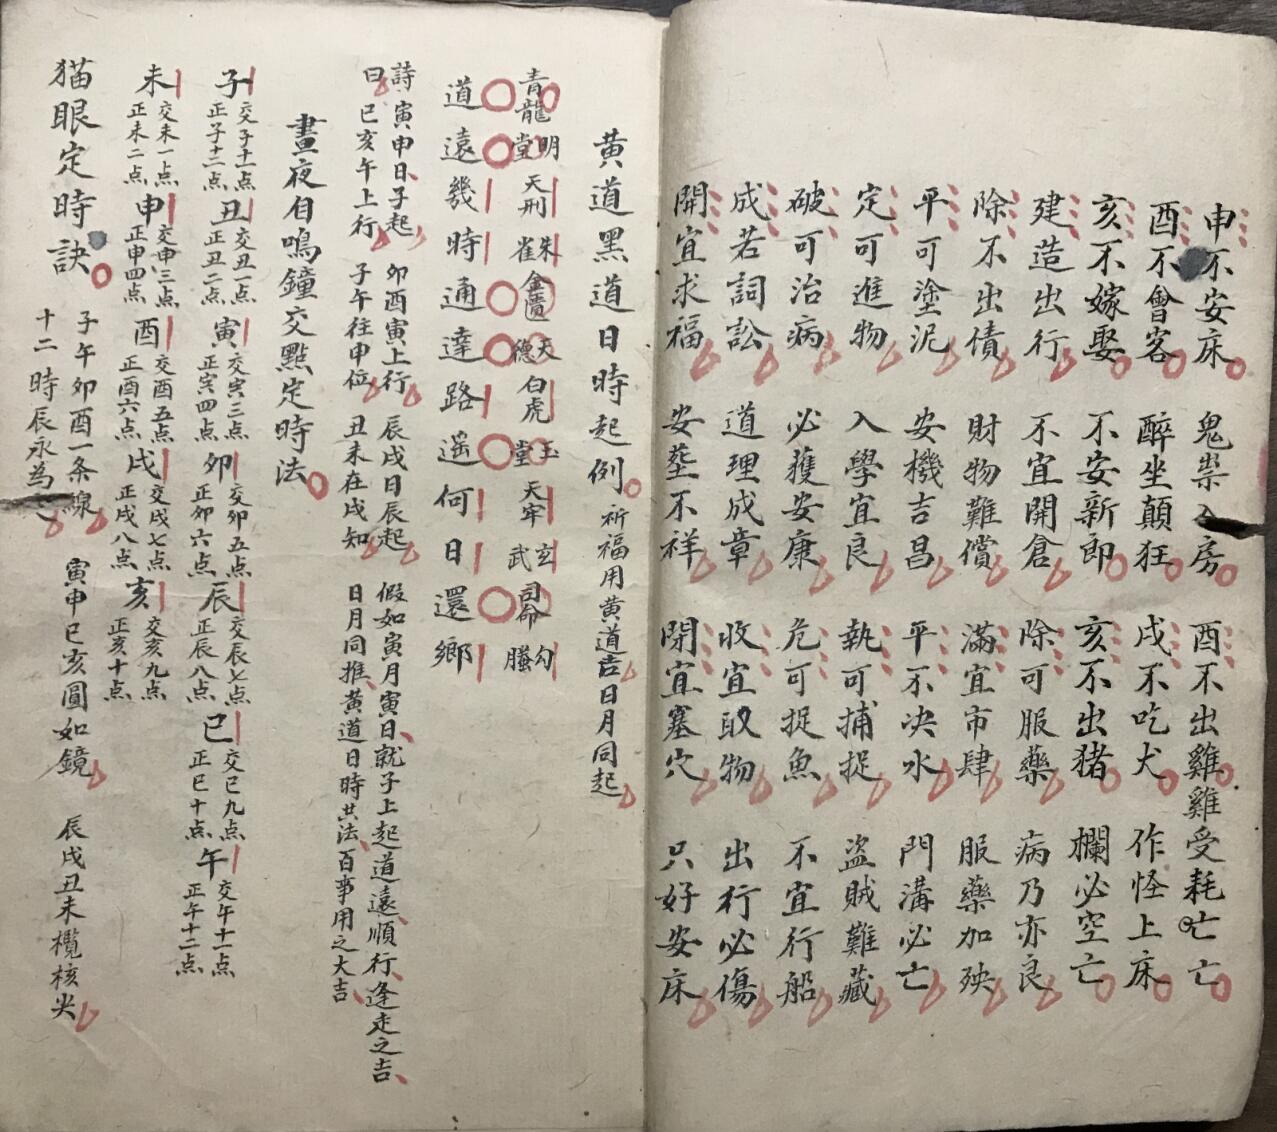 申不安床 鬼祟入房 酉不出雞 雞受耗亡亡
酉不會客 醉坐顛狂 戌不吃犬 作怪上床
亥不嫁娶 不安新郎 亥不出猪 欄必空亡
建造出行 不宜開倉 除可服藥 病乃亦良
除不出債 財物難償 滿宜市肆 服藥加殃
平可塗泥 安機吉昌 平不决水 門溝必亡
定可進物 入學宜良 執可捕捉 盗賊難藏
破可治病 必獲安康 危可捉魚 不宜行船
成若詞訟 道理成章 收宜取物 出行必傷
開宜求福 安塟不祥 閉宜塞穴 只好安床
黄道黑道日時起例 祈福用黄道吉日月同起
青龍 明堂 天刑 朱雀 金匱 天德 白虎 玉堂 天牢 玄武 司命 勾螣
道遠幾時通達路遥何日還鄉
詩曰 寅申日子起 卯酉寅上行 辰戌日辰起 假如寅月寅日就子上起道遠順行逢走之吉
巳亥午上行 子午往申位 丑未在戌知 日月同推黄道日時共法百事用之大吉
晝夜自鳴鐘交點定時法
子 交子十一点 正子十二点 丑 交丑一点 正丑二点 寅 交寅三点 正寅四点 卯 交卯五点 正卯六点 辰 交辰七点 正辰八点 巳 交巳九点 正巳十点 午 交午十一点 正午十二点
未 交未一点 正未二点 申 交申三点 正申四点 酉 交酉五点 正酉六点 戌 交戌七点 正戌八点 亥 交亥九点 正亥十点
猫眼定時訣 子午卯酉一条線 寅申巳亥圓如鏡 辰戌丑未欖核尖
十二時辰永為